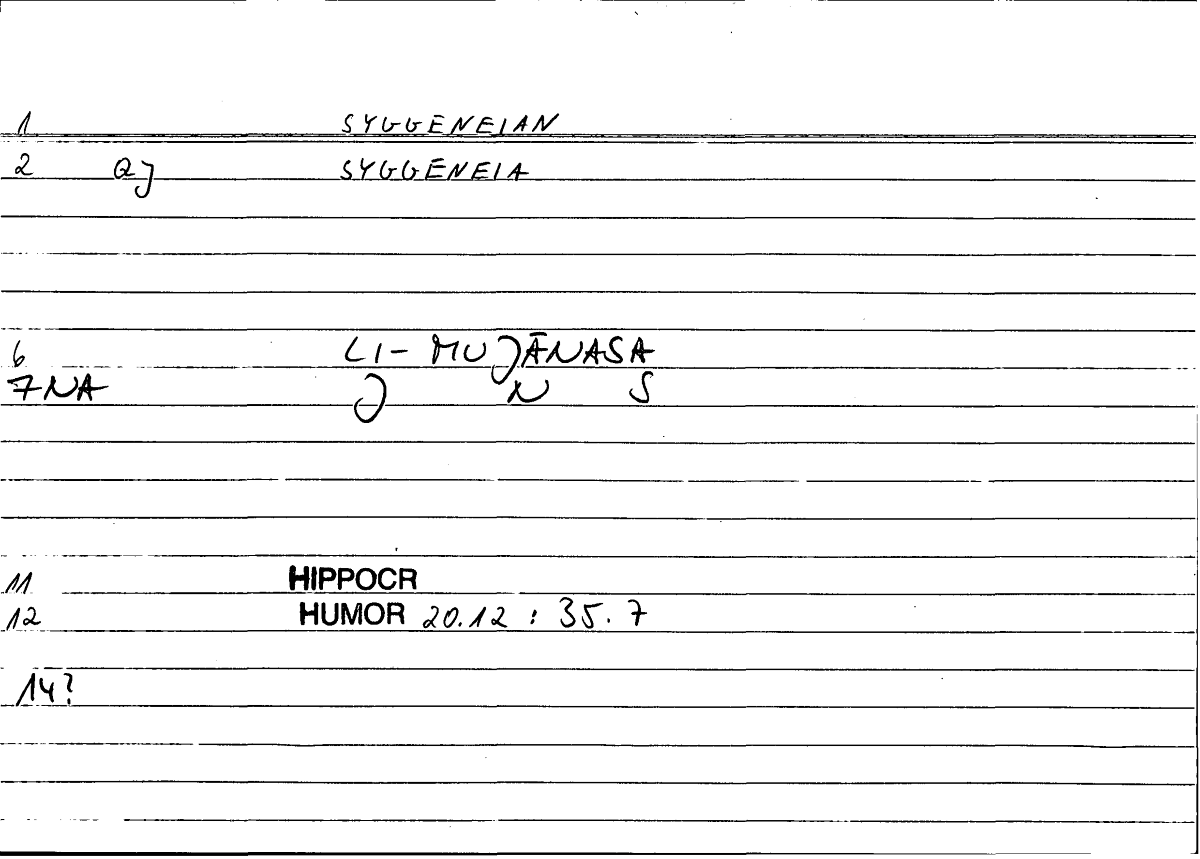 1 SYGGENEIAN
2 QJ SYGGENEIA
6 LI- MUJĀNASA
7NA J N S
11 HIPPOCR
12 HUMOR 20.12 : 35.7
14?